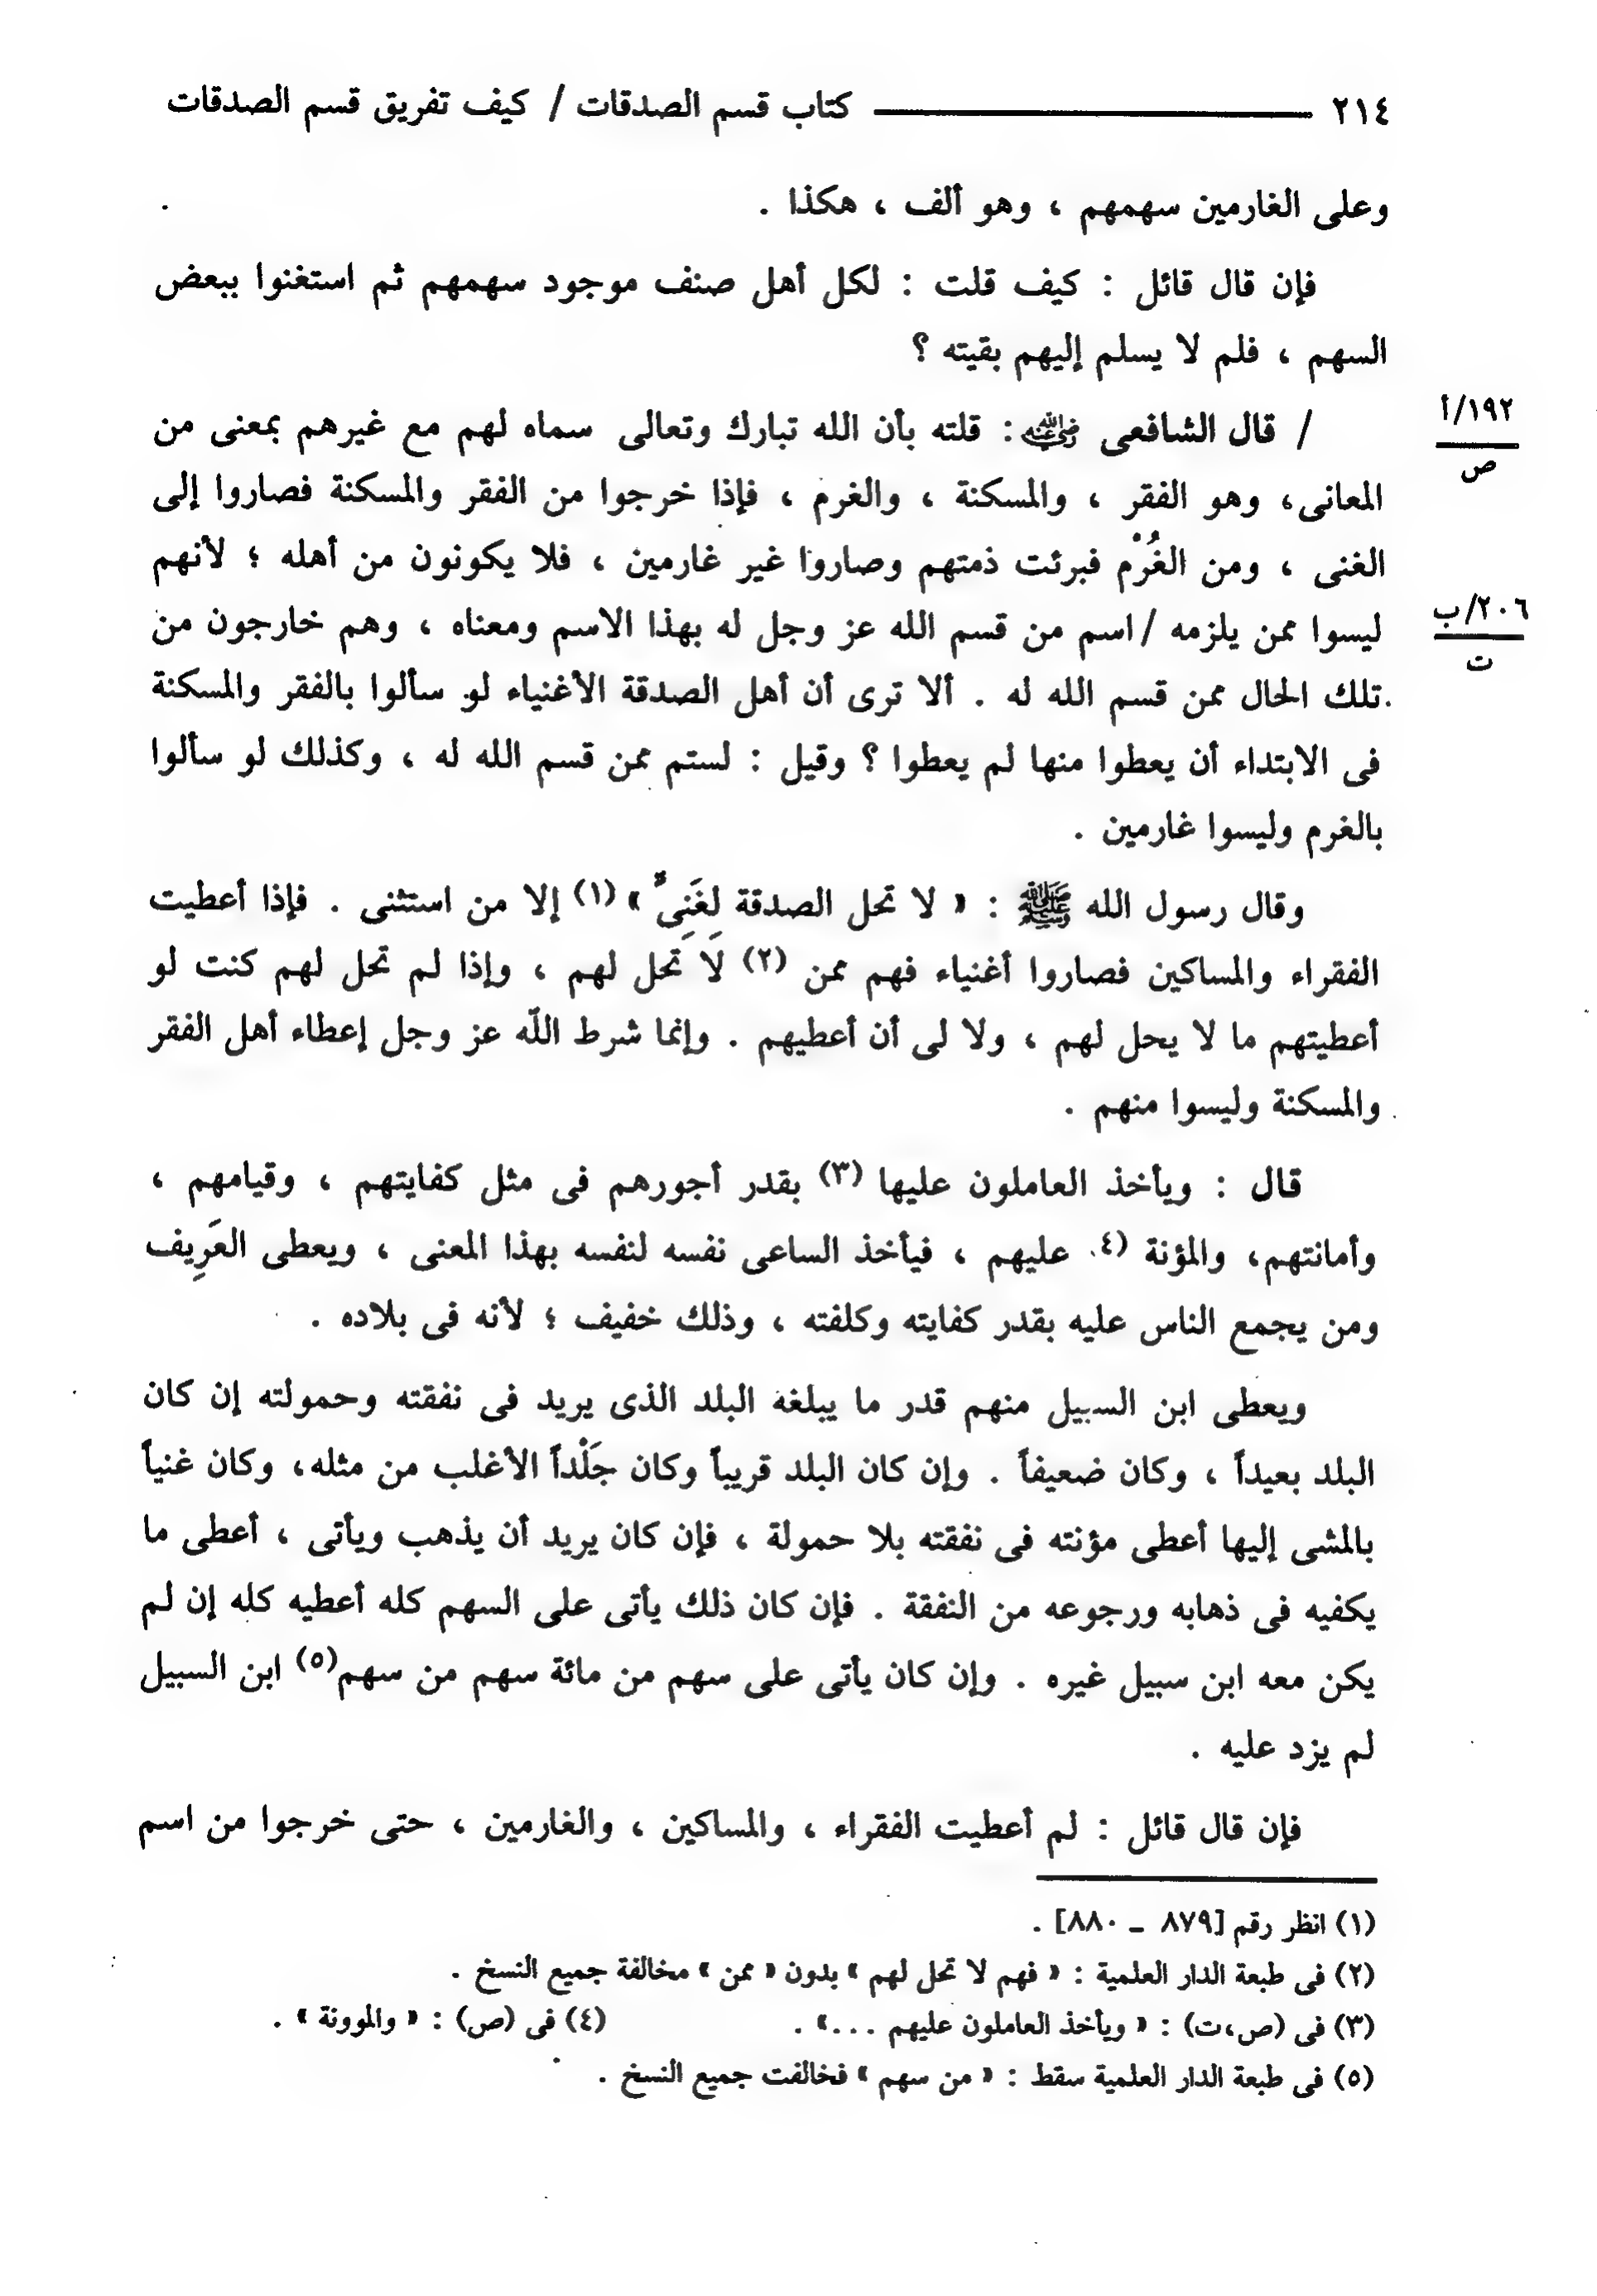 ٢١٤ ــــــــــــــــــــــــ كتاب قسم الصدقات / كيف تفريق قسم الصدقات
وعلى الغارمين سهمهم ، وهو ألف ، هكذا .
فإن قال قائل : كيف قلت : لكل أهل صنف موجود سهمهم ثم استغنوا ببعض
السهم ، فلم لا يسلم إليهم بقيته ؟
١٩٢/أ
ص
/ قال الشافعى رضي الله عنه : قلته بأن الله تبارك وتعالى سماه لهم مع غيرهم بمعنى من
المعانى، وهو الفقر ، والمسكنة ، والغرم ، فإذا خرجوا من الفقر والمسكنة فصاروا إلى
الغنى ، ومن الغُرْم فبرئت ذمتهم وصاروا غير غارمين ، فلا يكونون من أهله ؛ لأنهم
٢٠٦/ب
ت
ليسوا ممن يلزمه / اسم من قسم الله عز وجل له بهذا الاسم ومعناه ، وهم خارجون من
تلك الحال ممن قسم الله له . ألا ترى أن أهل الصدقة الأغنياء لو سألوا بالفقر والمسكنة
فى الابتداء أن يعطوا منها لم يعطوا ؟ وقيل : لستم ممن قسم الله له ، وكذلك لو سألوا
بالغرم وليسوا غارمين .
وقال رسول الله ﷺ : « لا تحل الصدقة لِغَنِىٍّ » (١) إلا من استثنى . فإذا أعطيت
الفقراء والمساكين فصاروا أغنياء فهم ممن (٢) لَا تَحل لهم ، وإذا لم تحل لهم كنت لو
أعطيتهم ما لا يحل لهم ، ولا لى أن أعطيهم . وإنما شرط اللّه عز وجل إعطاء أهل الفقر
والمسكنة وليسوا منهم .
قال : ويأخذ العاملون عليها (٣) بقدر أجورهم فى مثل كفايتهم ، وقيامهم ،
وأمانتهم، والمؤنة (٤) عليهم ، فيأخذ الساعى نفسه لنفسه بهذا المعنى ، ويعطى العَرِيف
ومن يجمع الناس عليه بقدر كفايته وكلفته ، وذلك خفيف ؛ لأنه فى بلاده .
ويعطى ابن السبيل منهم قدر ما يبلغه البلد الذى يريد فى نفقته وحمولته إن كان
البلد بعيداً ، وكان ضعيفاً . وإن كان البلد قريباً وكان جَلْداً الأغلب من مثله، وكان غنياً
بالمشى إليها أعطى مؤنته فى نفقته بلا حمولة ، فإن كان يريد أن يذهب ويأتى ، أعطى ما
يكفيه فى ذهابه ورجوعه من النفقة . فإن كان ذلك يأتى على السهم كله أعطيه كله إن لم
يكن معه ابن سبيل غيره . وإن كان يأتى على سهم من مائة سهم من سهم(٥) ابن السبيل
لم يزد عليه .
فإن قال قائل : لم أعطيت الفقراء ، والمساكين ، والغارمين ، حتى خرجوا من اسم
(١) انظر رقم [٨٧٩ - ٨٨٠] .
(٢) فى طبعة الدار العلمية : « فهم لا تحل لهم » بدون « ممن » مخالفة جميع النسخ .
(٣) فى (ص،ت) : « ويأخذ العاملون عليهم ...» . (٤) فى (ص) : « والموونة » .
(٥) فى طبعة الدار العلمية سقط : « من سهم » فخالفت جميع النسخ .